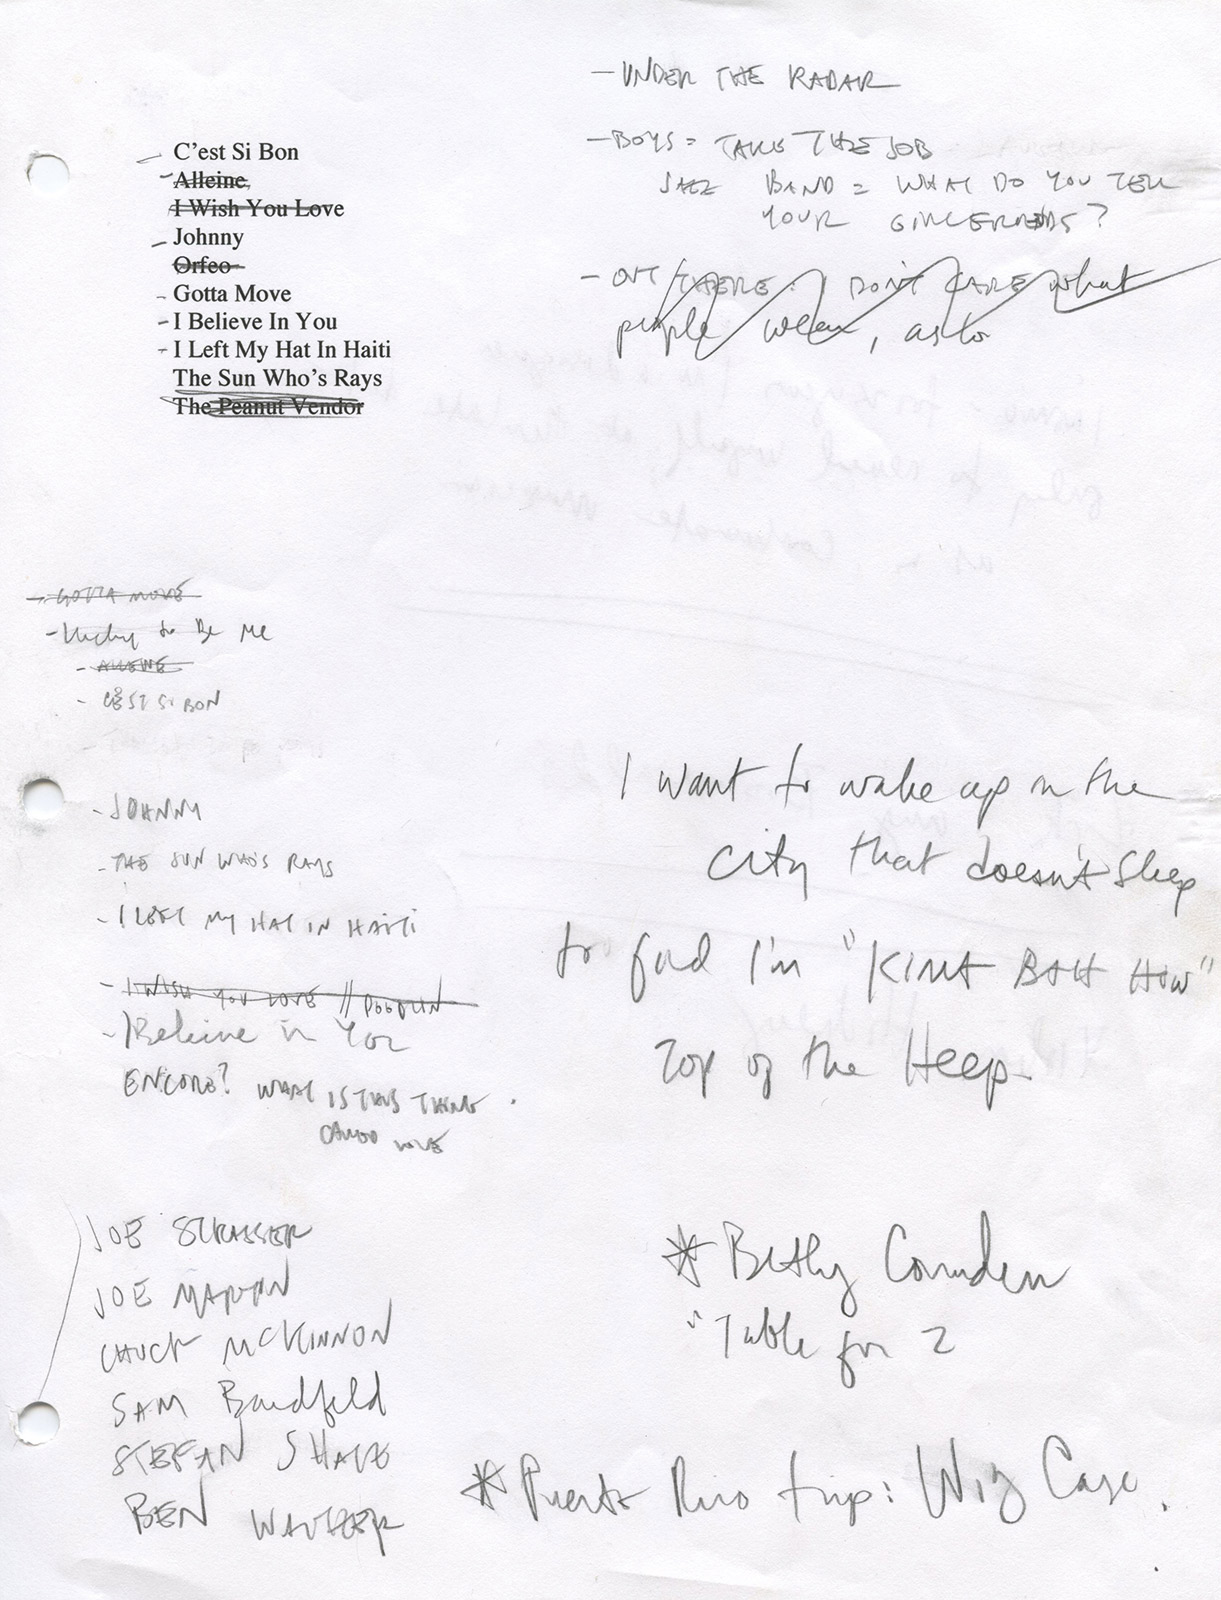 C'est Si Bon
Alleine
I Wish You Love
Johnny
Orfeo
Gotta Move
I Believe In You
I Left My Hat In Haiti
The Sun Who's Rays
The Peanut Vendor
- UNDER THE RADAR
- BOYS = TAKE THE JOB
BAND = WHAT DO YOU TELL
YOUR
- OUT THERE. I DON'T CARE what
people wear, as to
- GOTTA MOVE
- Lucky to Be Me
- ALLEINE
- C'EST SI BON
- JOHNNY
- THE SUN WHO'S RAYS
- I LEFT MY HAT IN HAITI
- I WISH YOU LOVE //
- I Believe in You
ENCORE? WHAT IS THIS THING
CALLED LOVE
I want to wake up in the
city that doesn't sleep
to find I'm "KINA BAH HOW"
Top of the Heep
JOE STRASSER
JOE MARTIN
CHUCK MCKINNON
SAM
STEFAN
BEN
* Betty Comden
"Table for 2
* Puerto Rico trip: Wig Case.